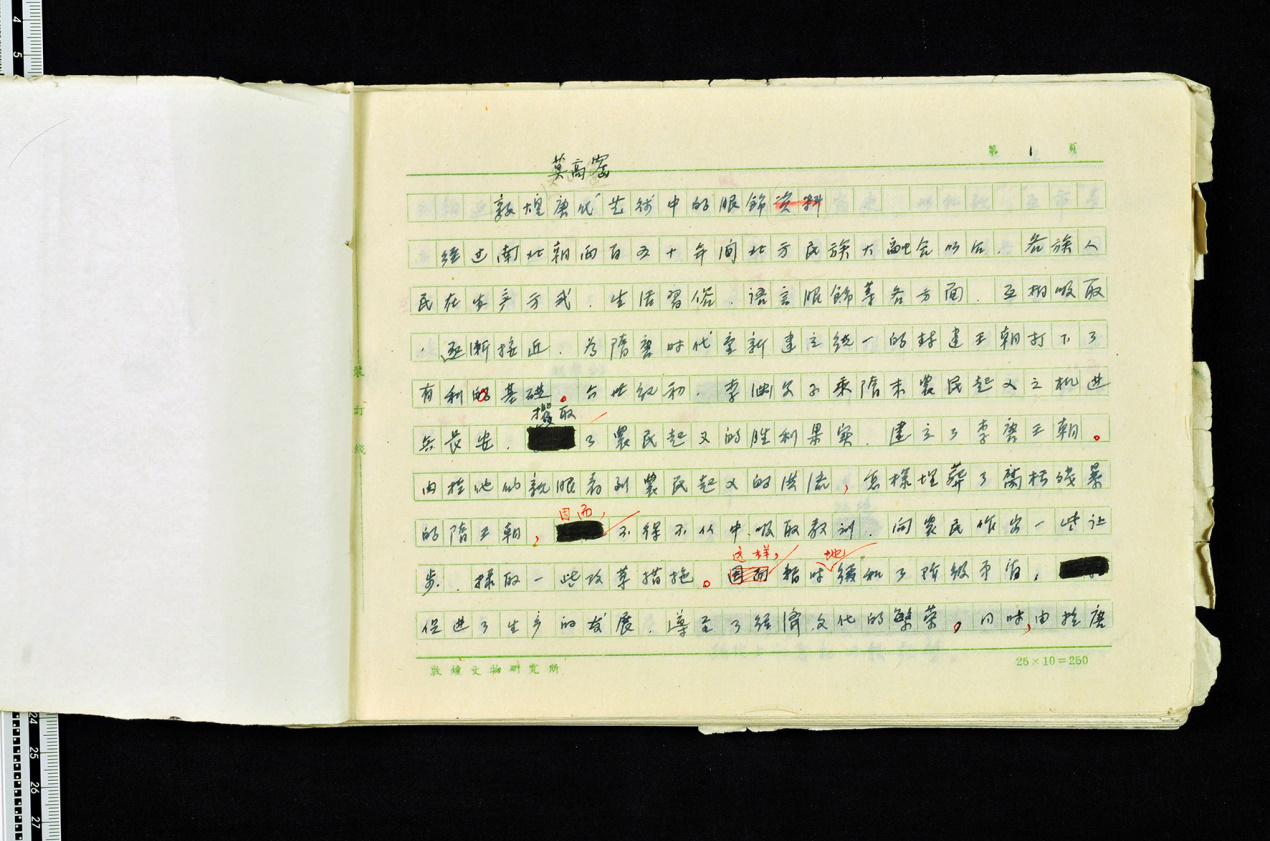 第 1 頁
莫高窟
敦煌唐代艺术中的服飾资料
经过南北朝两百五十年间北方民族大融会以后，各族人
民在生产方式、生活習俗、语言服飾等各方面，互相吸取
，逐漸接近，为隋唐时代重新建立统一的封建王朝打下了
有利的基礎。六世纪初，李渊父子乘隋末農民起义之机进
攫取
兵長安，了農民起义的胜利果实，建立了李唐王朝。
由於他们亲眼看到農民起义的洪流，怎样埋葬了腐朽残暴
因而，
的隋王朝，不得不从中吸取教训，向農民作出一些让
这样，地
步，採取一些改革措施。因而暂时缓和了阶级矛盾，
促进了生产的发展，導至了经濟文化的繁荣。同时，由於唐
敦煌文物研究所
25×10=250
装订线
4
5
24
25
26
27